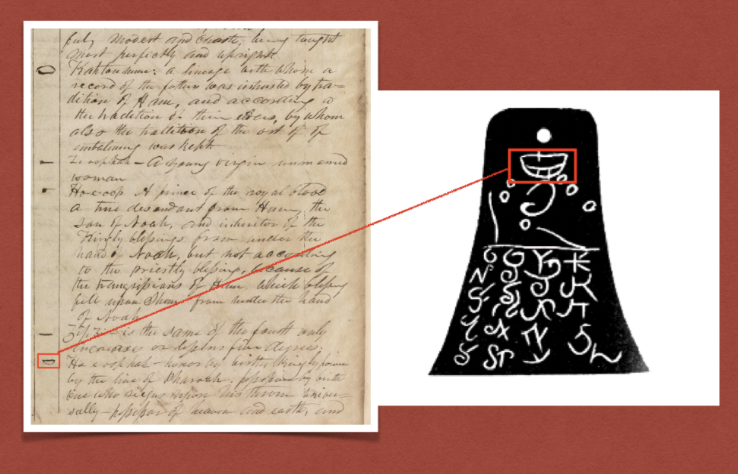 ful, modest and chaste, being taught
most perfectly and upright.
a lineage with whom a
record of the fathers was intrusted by tra-
dition of Ham, and according to
the tradition of their elders, by whom
also the tradition of the art of
embalming was kept
A young virgin unmarried
woman
Ho-e-oop A prince of the royal blood
a true descendant from Ham, the
Son of Noah, and inheritor of the
Kingly blessings from under the
hand of Noah, but not according
to the priestly blessing, because of
the transgressions of Ham, which blessing
fell upon Shem from under the hand
of Noah
is the same of the fourth only
increase or lessens five degrees.
Ho e oop hah - honor by birth, kingly power
by the line of Pharoah. possession by birth
one who reigns upon his throne univer-
sally - possessor of heaven and earth, and